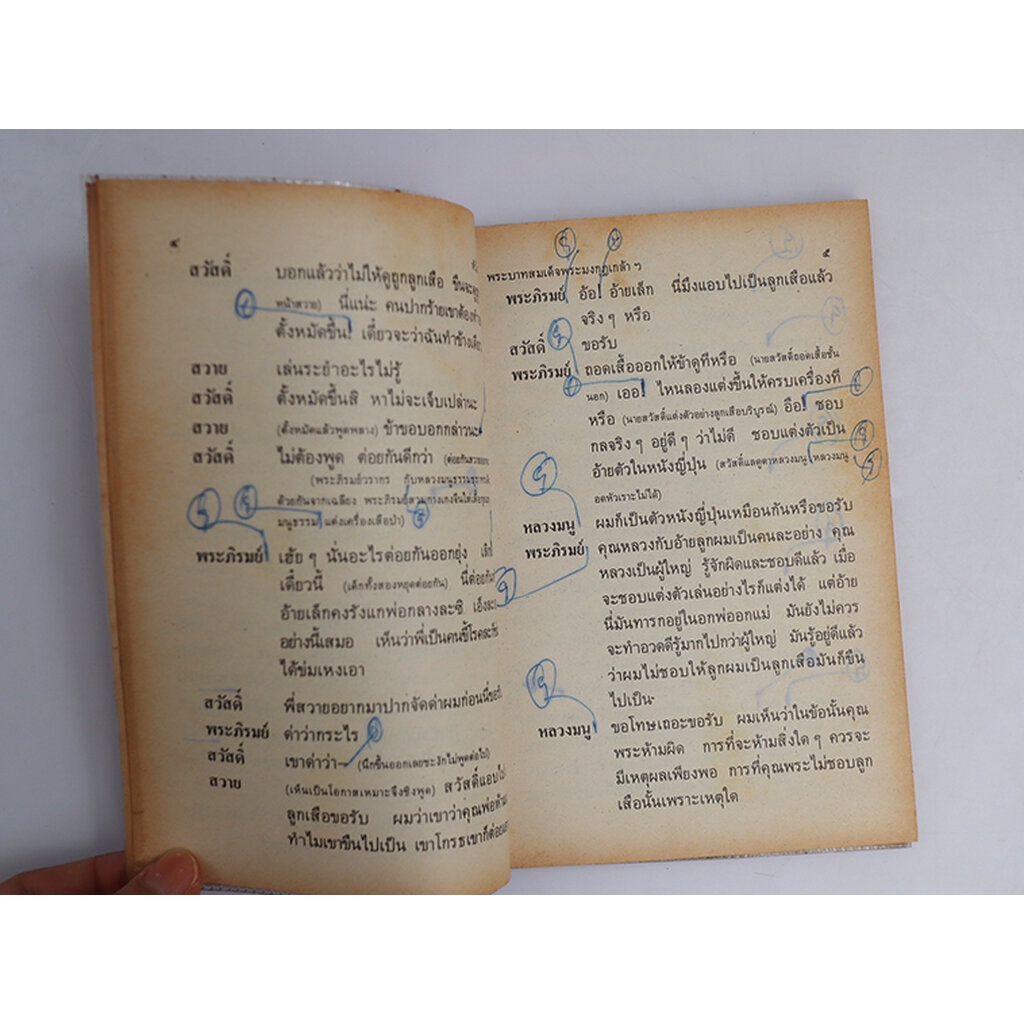 ๔
สวัสดิ์ บอกแล้วว่าไม่ให้ดูถูกลูกเสือ ขืนจะดู
หน้าสวาย) นี่แน่ะ คนปากร้ายเขาต้องทำ
ตั้งหมัดขึ้น! เดี๋ยวจะว่าฉันทำข้างเดียว
สวาย เล่นระยำอะไรไม่รู้
สวัสดิ์ ตั้งหมัดขึ้นสิ หาไม่จะเจ็บเปล่านะ
สวาย (ตั้งหมัดแล้วพูดพลาง) ข้าขอบอกกล่าวนะ
สวัสดิ์ ไม่ต้องพูด ต่อยกันดีกว่า
(พระภิรมย์วรากร กับหลวงมนูธรรม
ด้วยกันจากเฉลียง พระภิรมย์สวมกางเกงจีนใส่เสื้อกุย
มนูธรรมแต่งเครื่องเสือป่า)
พระภิรมย์ เฮ้ย ๆ นั่นอะไรต่อยกันออกยุ่ง
เดี๋ยวนี้ (เด็กทั้งสองหยุดต่อยกัน) นี่ต่อยกัน
อ้ายเล็กคงรังแกพ่อกลางละซิ เอ็งละ
อย่างนี้เสมอ เห็นว่าพี่เป็นคนขี้โรคละก็
ได้ข่มเหงเอา
สวัสดิ์ พี่สวายอยากมาปากจัดด่าผมก่อนนี่ขอรับ
พระภิรมย์ ด่าว่ากระไร
สวัสดิ์ เขาด่าว่า— (นึกขึ้นออกเลยชะงักไม่พูดต่อไป)
สวาย (เห็นเป็นโอกาสเหมาะจึงชิงพูด) สวัสดิ์แอบไป
ลูกเสือขอรับ ผมว่าเขาว่าคุณพ่อห้าม
ทำไมเขาขืนไปเป็น เขาโกรธเขาก็ต่อย
พระบาทสมเด็จพระมงกุฎเกล้า ฯ
๕
พระภิรมย์ อ้อ! อ้ายเล็ก นี่มึงแอบไปเป็นลูกเสือแล้ว
จริง ๆ หรือ
สวัสดิ์ ขอรับ
พระภิรมย์ ถอดเสื้อออกให้ข้าดูทีหรือ (นายสวัสดิ์ถอดเสื้อชั้น
นอก) เออ! ไหนลองแต่งขึ้นให้ครบเครื่องที
หรือ (นายสวัสดิ์แต่งตัวอย่างลูกเสือบริบูรณ์) อือ! ชอบ
กลจริง ๆ อยู่ดี ๆ ว่าไม่ดี ชอบแต่งตัวเป็น
อ้ายตัวในหนังญี่ปุ่น (สวัสดิ์แลดูตาหลวงมนู หลวงมนู
อดหัวเราะไม่ได้)
หลวงมนู ผมก็เป็นตัวหนังญี่ปุ่นเหมือนกันหรือขอรับ
พระภิรมย์ คุณหลวงกับอ้ายลูกผมเป็นคนละอย่าง คุณ
หลวงเป็นผู้ใหญ่ รู้จักผิดและชอบดีแล้ว เมื่อ
จะชอบแต่งตัวเล่นอย่างไรก็แต่งได้ แต่อ้าย
นี่มันทารกอยู่ในอกพ่ออกแม่ มันยังไม่ควร
จะทำอวดดีรู้มากไปกว่าผู้ใหญ่ มันรู้อยู่ดีแล้ว
ว่าผมไม่ชอบให้ลูกผมเป็นลูกเสือมันก็ขืน
ไปเป็น-
หลวงมนู ขอโทษเถอะขอรับ ผมเห็นว่าในข้อนั้นคุณ
พระห้ามผิด การที่จะห้ามสิ่งใด ๆ ควรจะ
มีเหตุผลเพียงพอ การที่คุณพระไม่ชอบลูก
เสือนั้นเพราะเหตุใด